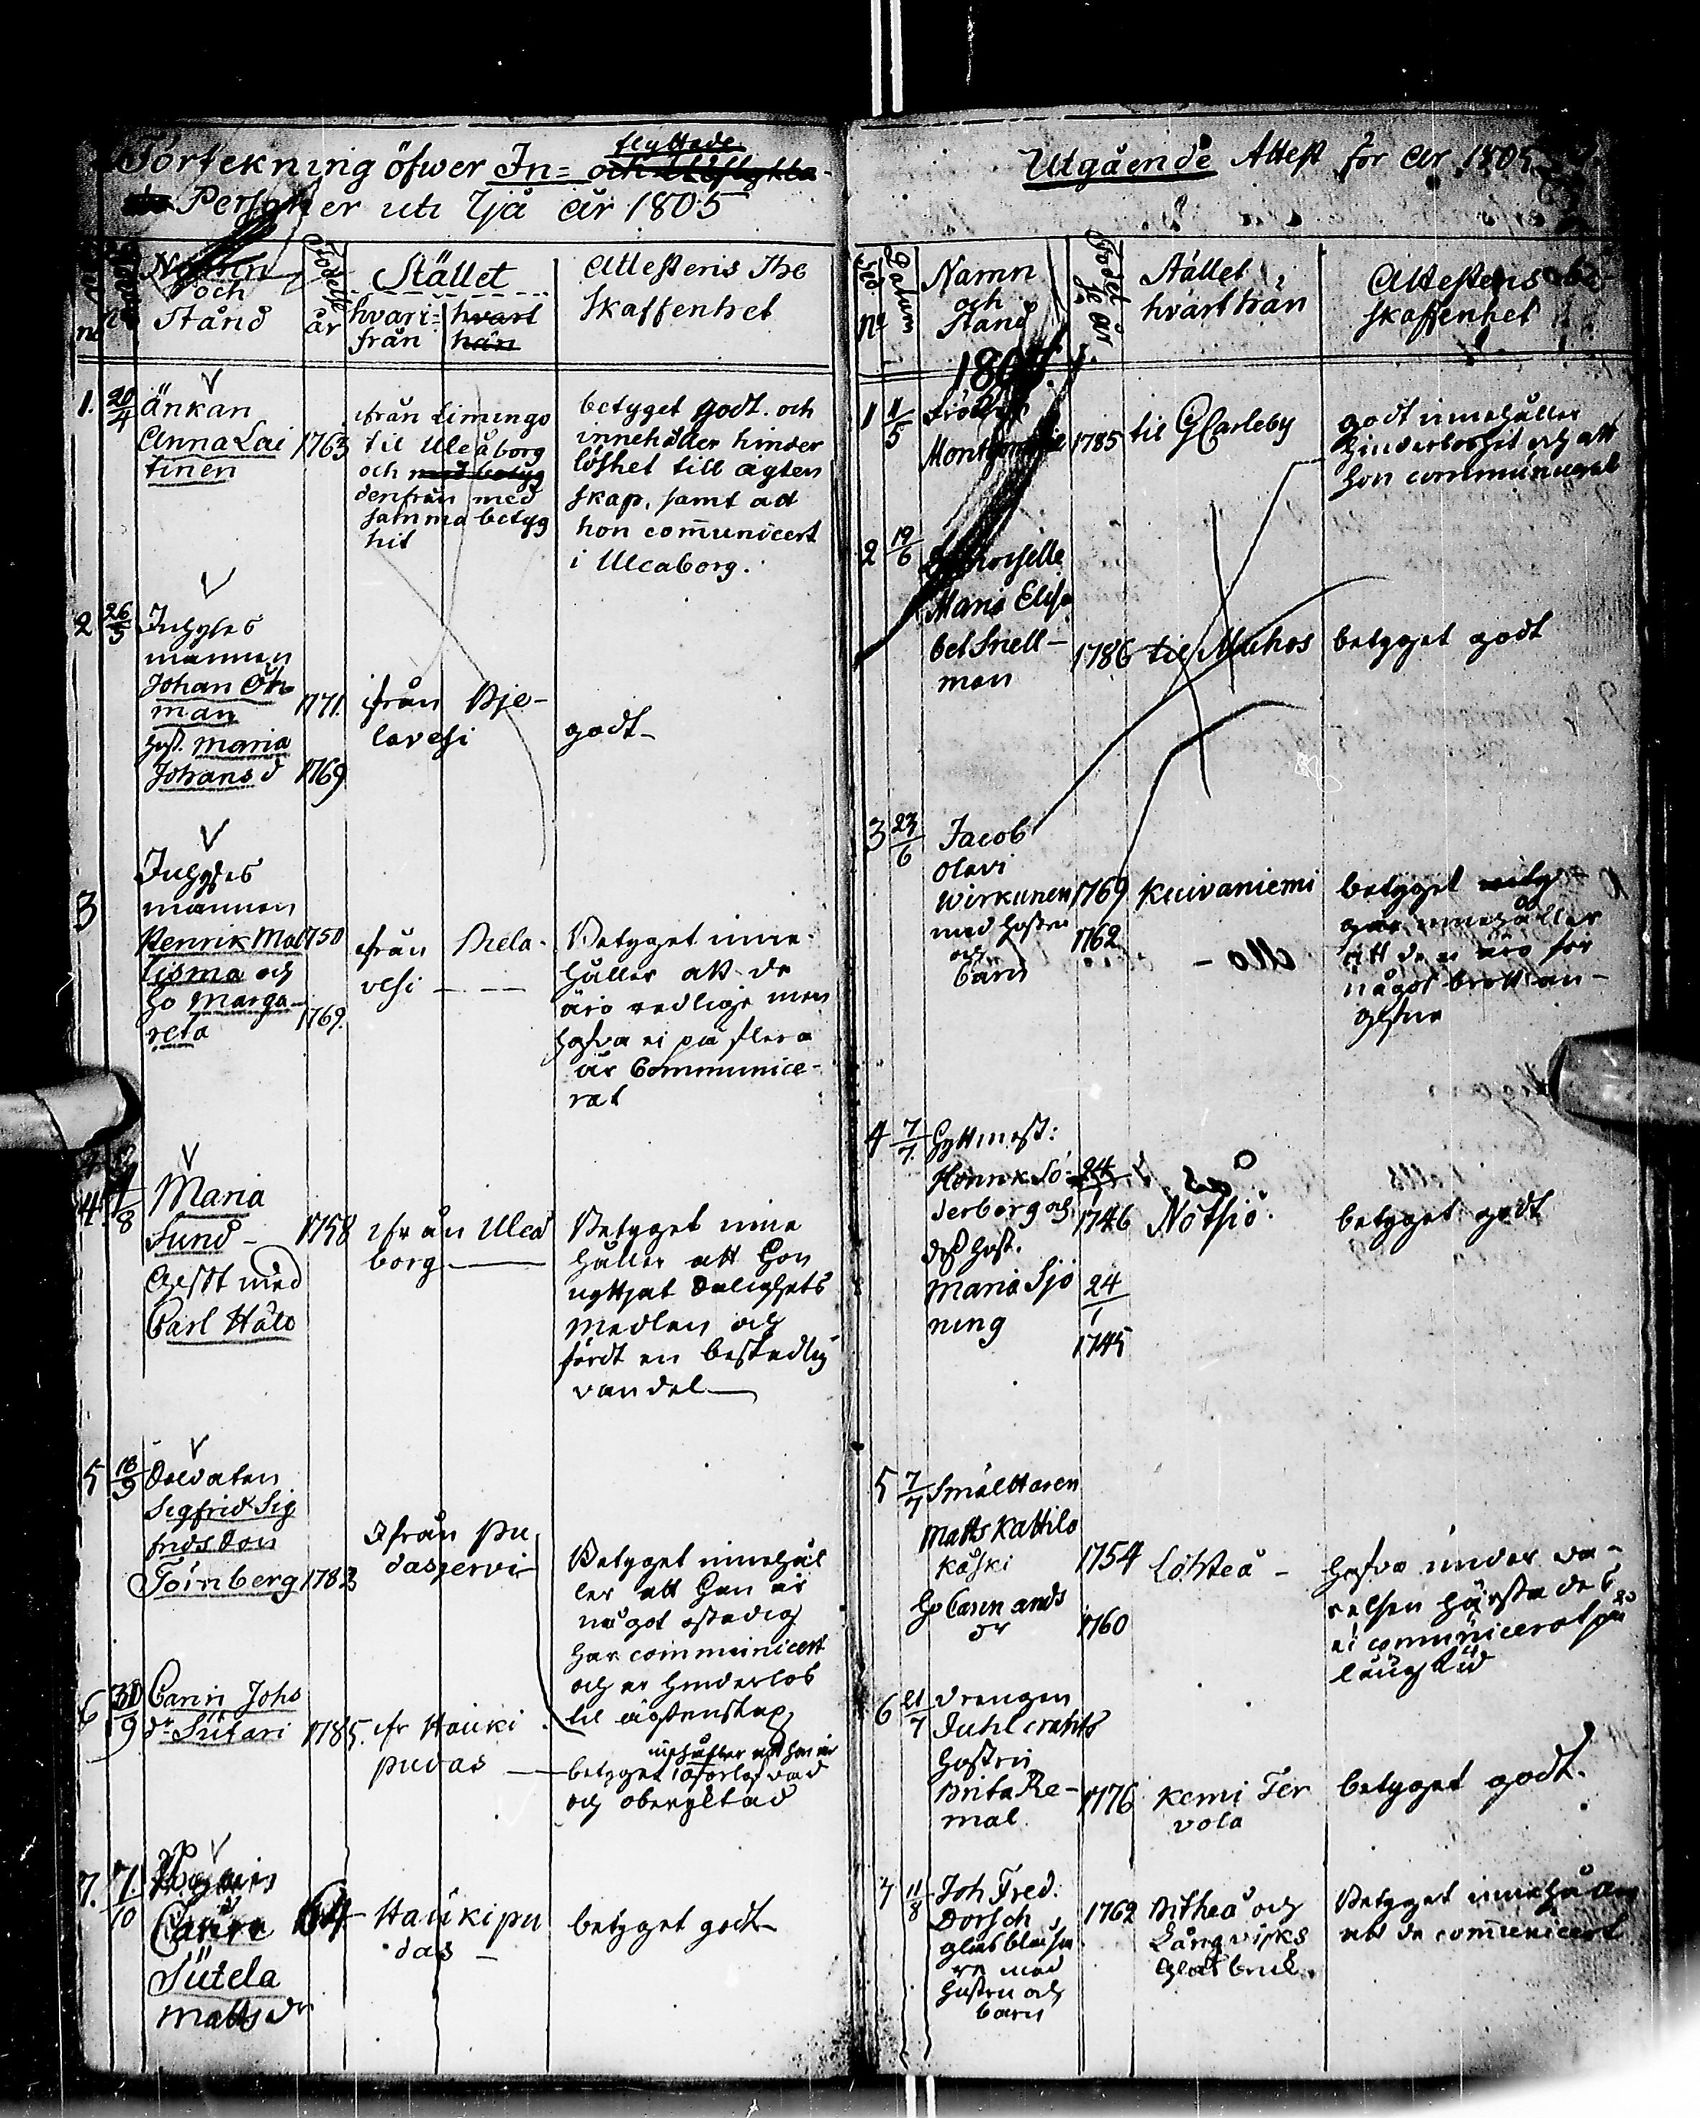 flyttade
Förtekning öfwer In= och Utflykta
de Personer uti Ijå år 1805
Namn
och
Stånd
Födelse
år
Stället
hvari=
från
hvart
hän
Attestens Be
skaffenhet
1. 20/4 Änkan
Anna Lai
tinen
1763
ifrån Limingo
til Uleåborg
och med betyg
derifrån med
samma betyg
hit
betyget godt. och
innehåller hinder
löshet till ägten
skap, samt att
hon com̄unicert
i Uleaborg.
2 26/5 Inhyses
mannen
Johan Öh
man
hust. Maria
Johans d
1771.
1769
ifrån Pje-
lavesi
godt_
3
Inhyses
mannen
Henrik Mal
lisma och
ho Marga-
reta
1750
1769.
ifrån Piela-
vesi
Betyget inne-
håller att de
äro redlige men
hafva ei på flera
år Communice-
rat
4. /8 Maria
Sund-
Gift med
Carl Hålo
1758
ifrån Uleå
borg
Betyget inne
håller att hon
nyttjat Salighets
Medlen och
fördt en beskedlig
vandel
5 18/9 Soldaten
Sigfrid Sig
frids Son
Törnberg
1783
Ifrån Pu
dasjervi
Betyget innehål
ler att han är
något ostadig
har communicert
och er hinderlös
til ägtenskap
6 30/9 Carin Johs
dr Siitari
1785.
ifr Hauki
pudas
innehåller att hon är
betyget oförlofvad
och oberyktad
7. 7/10
Carin
Siitela
Matts dr
Haukipu
das -
betyget godt-
Utgående Attest för år 1805
No
Datum
Namn
och
Stånd
Födelse år
Stället
hvart hän
Attestens be-
skaffenhet
1804.
1 11/5
Montgomerie
1785
til GCarleby
godt innehåller
hinderlöshet och att
hon communicerat
2 19/6
Maria Elisa
bet Snell-
man
1786
til Muhos
betyget godt
3 23/6 Jacob
Olavi
Wirkunen
med hustru
och
barn
1769
1762
Kuivaniemi
betyget
innehåller
att de ei äro för
något brott an-
gifne
4 7/7. Hyttmest:
Henrik Sö-
derberg och
deß hust.
Maria Sjö
ning
24
1746
24/1
1745
Nötsiö.
betyget godt
5 7/7 Smältaren
Matts Kattila
koski
Ho Carin Ands
dr
1754
1760
Lohteå -
hafva under va-
relsen härstädes
ei com̄unicerat på
lång tid
6 21/7 Drengen
Juhl
hustru
Brita Re-
mal
1776
Kemi Ter
vola
betyget godt.
7 11/8 Joh Fred.
Dorsch
glasblåsa
re med
hustru och
barn
1762
Pitheå och
Långvicks
Glas bruk.
Betyget innehåller
att de com̄unicert